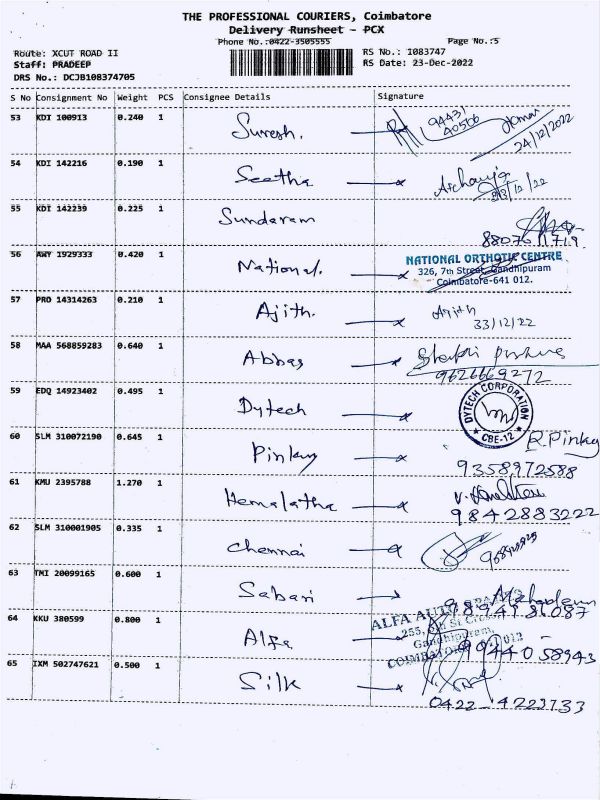 THE PROFESSIONAL COURIERS, Coimbatore
Delivery Runsheet - PCX
Phone No.:0422-3505555
Page No.:5
Route: XCUT ROAD II
RS No.: 1083747
Staff: PRADEEP
RS Date: 23-Dec-2022
DRS No.: DCJB108374705
S No Consignment No Weight PCS Consignee Details Signature
53 KDI 100913 0.240 1 Suresh. 94431 40566
24/12/2022
54 KDI 142216 0.190 1 Seetha
55 KDI 142239 0.225 1 Sundaram
8807011719
56 AWY 1929333 0.420 1 National. NATIONAL ORTHOTIC CENTRE
326, 7th Street, Gandhipuram
Coimbatore-641 012.
57 PRO 14314263 0.210 1 Ajith. Ajith
33/12/22
58 MAA 568859283 0.640 1 Abbas
9626669272
59 EDQ 14923402 0.495 1 Dytech DYTECH CORPORATION
CBE-12
60 SLM 310072190 0.645 1 Pinkuy R.Pinky
9358972588
61 KMU 2395788 1.270 1 Hemalatha
9842883222
62 SLM 310001905 0.335 1 Chennai
63 TMI 20099165 0.600 1 Sabari
64 KKU 380599 0.800 1 Alfa
Gandhipuram,
9944058943
65 IXM 502747621 0.500 1 Silk
0422-4223733